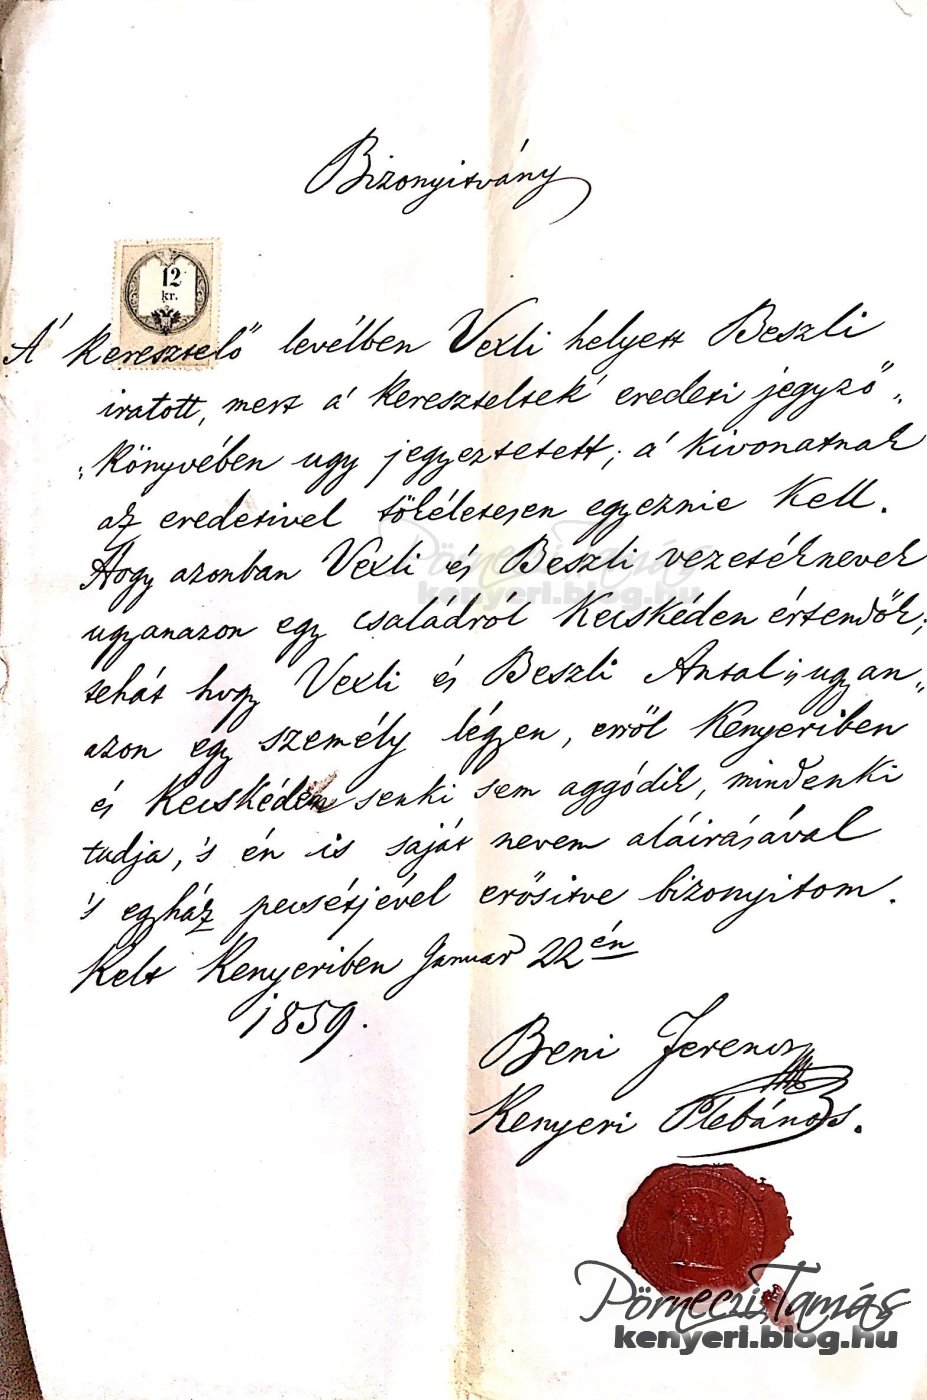 Bizonyitvány
12
kr.
A' keresztelő levélben Vexli helyett Beszli
iratott, mert a' kereszteltek' eredeti jegyző „
„könyvében ugy jegyeztetett; a' kivonatnak
az eredetivel tökéletesen egyeznie kell.
Hogy azonban Vexli és Beszli vezetéknevek
ugyanazon egy családról Kecskéden értendők;
tehát hogy Vexli és Beszli Antal „ugyan „
azon egy személy légyen, erről Kenyeriben
és Kecskéden senki sem aggódik, mindenki
tudja, 's én is saját nevem aláirásával
's egyház pecsétjével erősitve bizonyitom.
Kelt Kenyeriben Januar 22én
1859.
Beni Ferencz
Kenyeri Plebános.
Pörneczi Tamás
kenyeri.blog.hu
Pörneczi Tamás
kenyeri.blog.hu